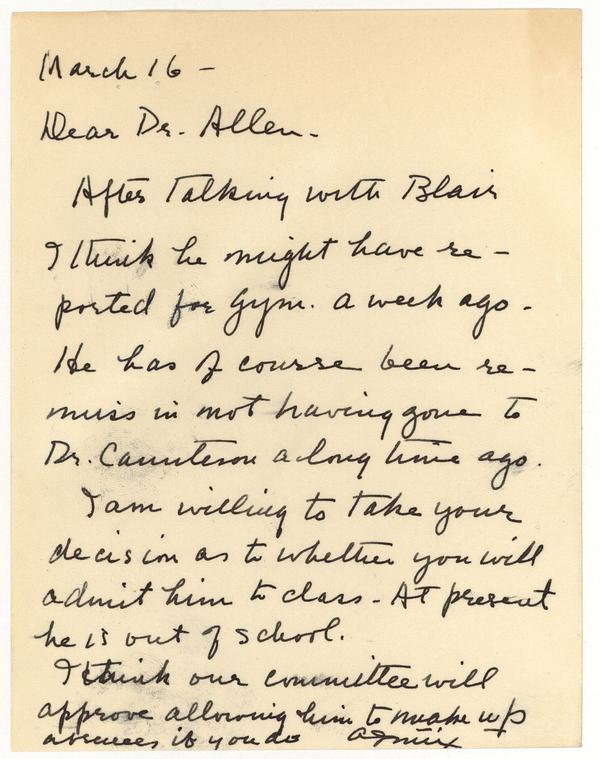 March 16 -
Dear Dr. Allen.
After talking with Blair
I think he might have re-
ported for Gym. a week ago.
He has of course been re-
miss in not having gone to
Dr. a long time ago.
I am willing to take your
decision as to whether you will
admit him to class - At present
he is out of school.
I think our committee will
approve allowing him to make up
absences if you do